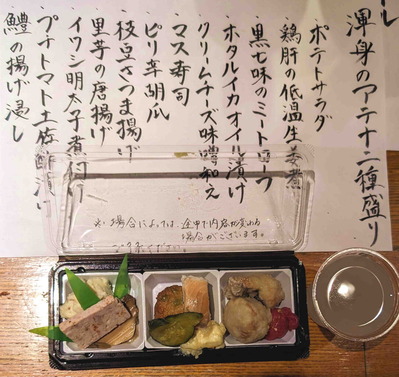 渾身のアテナ二種盛り
ポテトサラダ
鶏肝の低温生姜煮
黒七味のミートローフ
ホタルイカオイル漬け
クリームチーズ味噌和え
マス寿司
ピリ辛胡瓜
枝豆さつま揚げ
里芋の唐揚げ
イワシ明太子煮付け
プチトマト土佐酢漬い
鱧の揚げ浸し
※場合によっては、途中で内容が変わる
場合がございます。
ください。